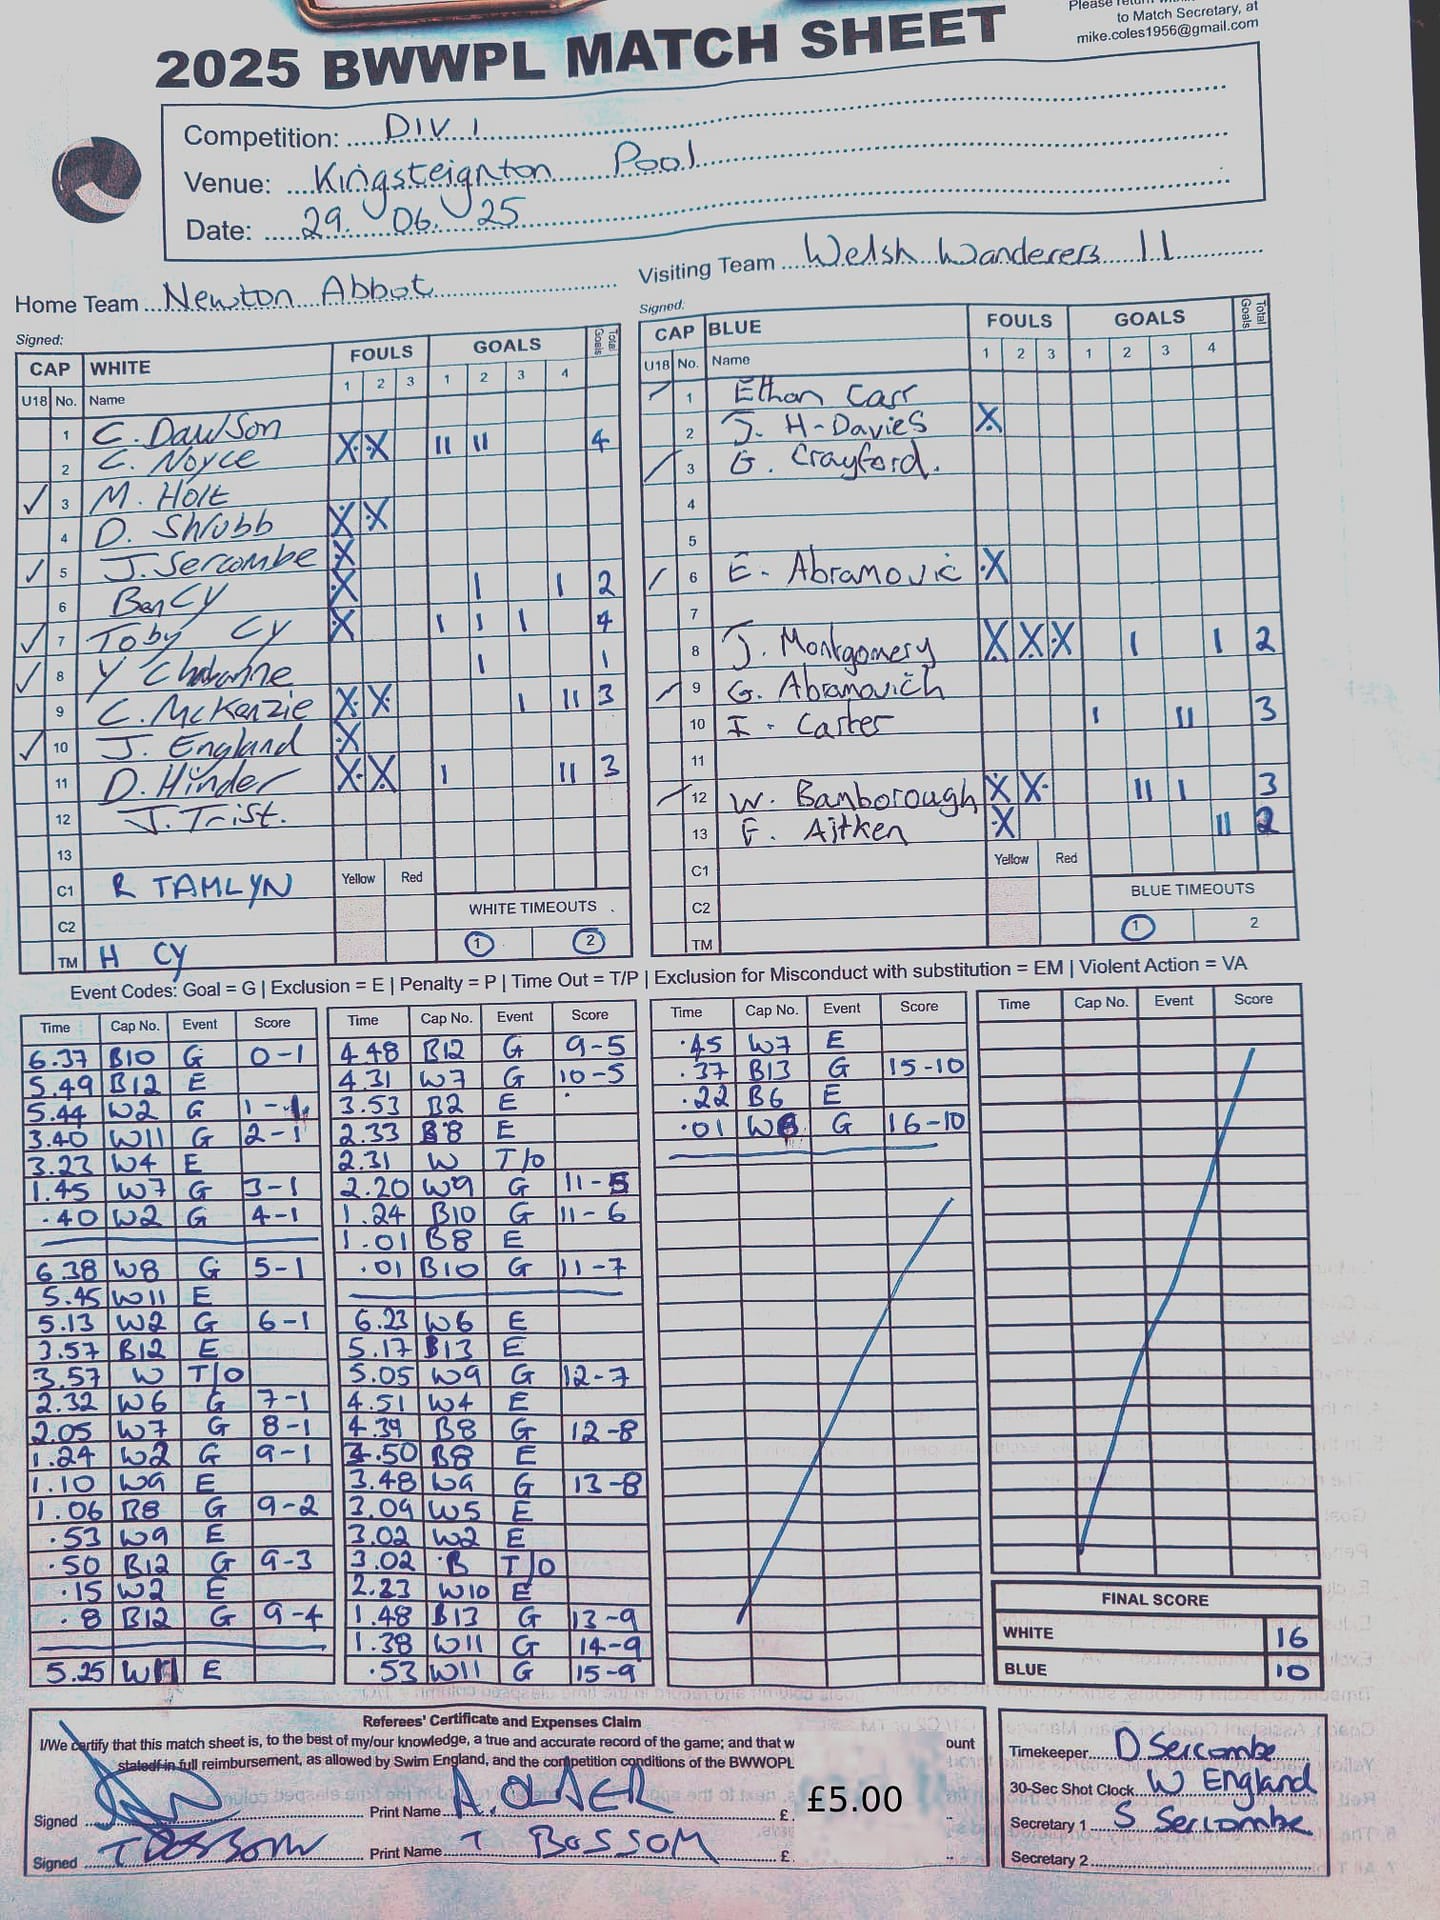 Please return within
to Match Secretary, at
mike.coles1956@gmail.com
2025 BWWPL MATCH SHEET
Competition: DIV 1
Venue: Kingsteignton Pool
Date: 29. 06. 25
Home Team Newton Abbot
Visiting Team Welsh Wanderers 11
Signed:
CAP WHITE FOULS GOALS Total Goals
U18 No. Name 1 2 3 1 2 3 4
1 C. Dawson
2 C. Noyce X X 11 11 4
✓ 3 M. Holt
4 D. Shrubb X X
✓ 5 J. Sercombe X
6 Ben Cy X 1 1 2
✓ 7 Toby Cy X 1 1 1 4
✓ 8 Y 1 1
9 C. McKenzie X X 1 11 3
✓ 10 J. England X
11 D. Hinder X X 1 11 3
12 J. Trist.
13
C1 R TAMLYN Yellow Red
C2 WHITE TIMEOUTS
TM H CY 1 2
Signed:
CAP BLUE FOULS GOALS Total Goals
U18 No. Name 1 2 3 1 2 3 4
/ 1 Ethan Carr
2 J. H-Davies X
/ 3 G. Crayford.
4
5
/ 6 E. Abramovic X
7
8 J. Montgomery X X X 1 1 2
/ 9 G. Abramovich
10 I. Carter 1 11 3
11
/ 12 W. Bamborough X X 11 1 3
13 F. Aitken X 11 2
C1 Yellow Red
C2 BLUE TIMEOUTS
TM 1 2
Event Codes: Goal = G | Exclusion = E | Penalty = P | Time Out = T/P | Exclusion for Misconduct with substitution = EM | Violent Action = VA
Time Cap No. Event Score
6.37 B10 G 0-1
5.49 B12 E
5.44 W2 G 1-1
3.40 W11 G 2-1
3.23 W4 E
1.45 W7 G 3-1
.40 W2 G 4-1
6.38 W8 G 5-1
5.45 W11 E
5.13 W2 G 6-1
3.57 B12 E
3.57 W T/O
2.32 W6 G 7-1
2.05 W7 G 8-1
1.24 W2 G 9-1
1.10 W9 E
1.06 B8 G 9-2
.53 W9 E
.50 B12 G 9-3
.15 W2 E
.8 B12 G 9-4
5.25 W11 E
Time Cap No. Event Score
4.48 B12 G 9-5
4.31 W7 G 10-5
3.53 B2 E
2.33 B8 E
2.31 W T/O
2.20 W9 G 11-5
1.24 B10 G 11-6
1.01 B8 E
.01 B10 G 11-7
6.23 W6 E
5.17 B13 E
5.05 W9 G 12-7
4.51 W4 E
4.39 B8 G 12-8
4.50 B8 E
3.48 W9 G 13-8
3.09 W5 E
3.02 W2 E
3.02 B T/O
2.23 W10 E
1.48 B13 G 13-9
1.38 W11 G 14-9
.53 W11 G 15-9
Time Cap No. Event Score
.45 W7 E
.37 B13 G 15-10
.22 B6 E
.01 W6 G 16-10
Time Cap No. Event Score
FINAL SCORE
WHITE 16
BLUE 10
Referees' Certificate and Expenses Claim
I/We certify that this match sheet is, to the best of my/our knowledge, a true and accurate record of the game; and that w ount
stated in full reimbursement, as allowed by Swim England, and the competition conditions of the BWWOPL
Signed Print Name £ £5.00
Signed T Bossom Print Name T BOSSOM £
Timekeeper D Sercombe
30-Sec Shot Clock W England
Secretary 1 S Sercombe
Secretary 2